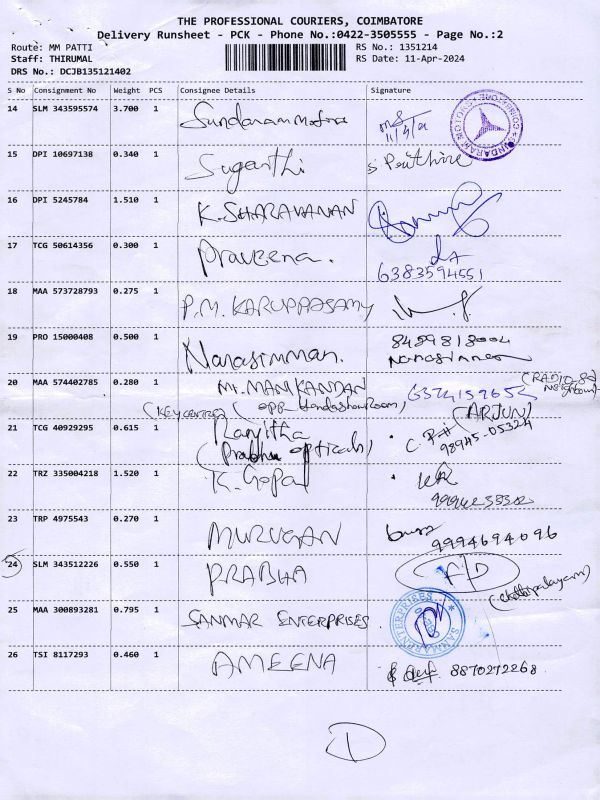 THE PROFESSIONAL COURIERS, COIMBATORE
Delivery Runsheet - PCK - Phone No.:0422-3505555 - Page No.:2
Route: MM PATTI RS No.: 1351214
Staff: THIRUMAL RS Date: 11-Apr-2024
DRS No.: DCJB135121402
S No Consignment No Weight PCS Consignee Details Signature
14 SLM 343595574 3.700 1 Sundaram Motors
15 DPI 10697138 0.340 1 Suganthi
16 DPI 5245784 1.510 1 K. SHARAVANAN
17 TCG 50614356 0.300 1 Praveena.
6383594551
18 MAA 573728793 0.275 1 P.M. KARUPPASAMY
19 PRO 15000408 0.500 1 Narasimman.
20 MAA 574402785 0.280 1 M. MANIKANDAN
(opp Honda showroom)
21 TCG 40929295 0.615 1 Ranjitha (ARJUN)
(Prabhu opticals) 98945-05324
22 TRZ 335004218 1.520 1 K. Gopal
23 TRP 4975543 0.270 1 MURUGAN 9994694096
24 SLM 343512226 0.550 1 PRABHA
25 MAA 300893281 0.795 1 SANMAR ENTERPRISES
26 TSI 8117293 0.460 1 AMEENA 8870272268
1